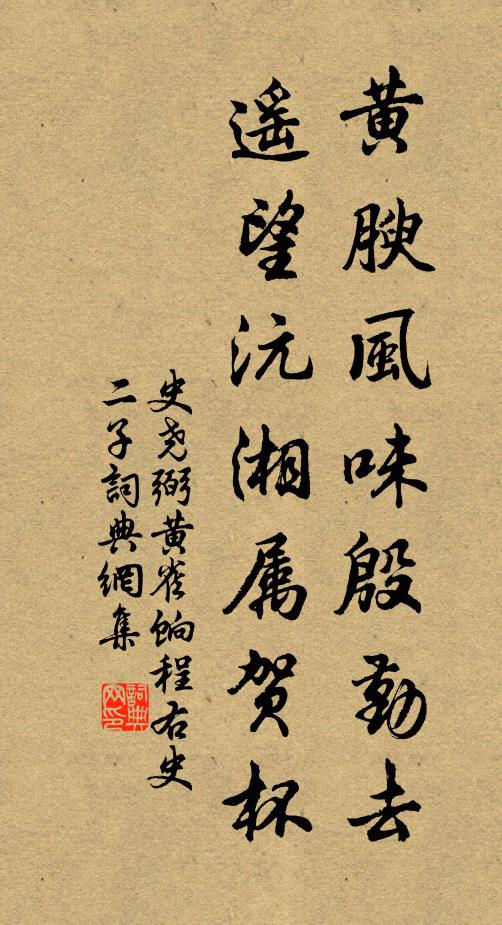 黄腴風味殷勤去
遥望沅湘属贺杯
史尧弼黄雀餉程右史
二子詞典網集
詞典网印